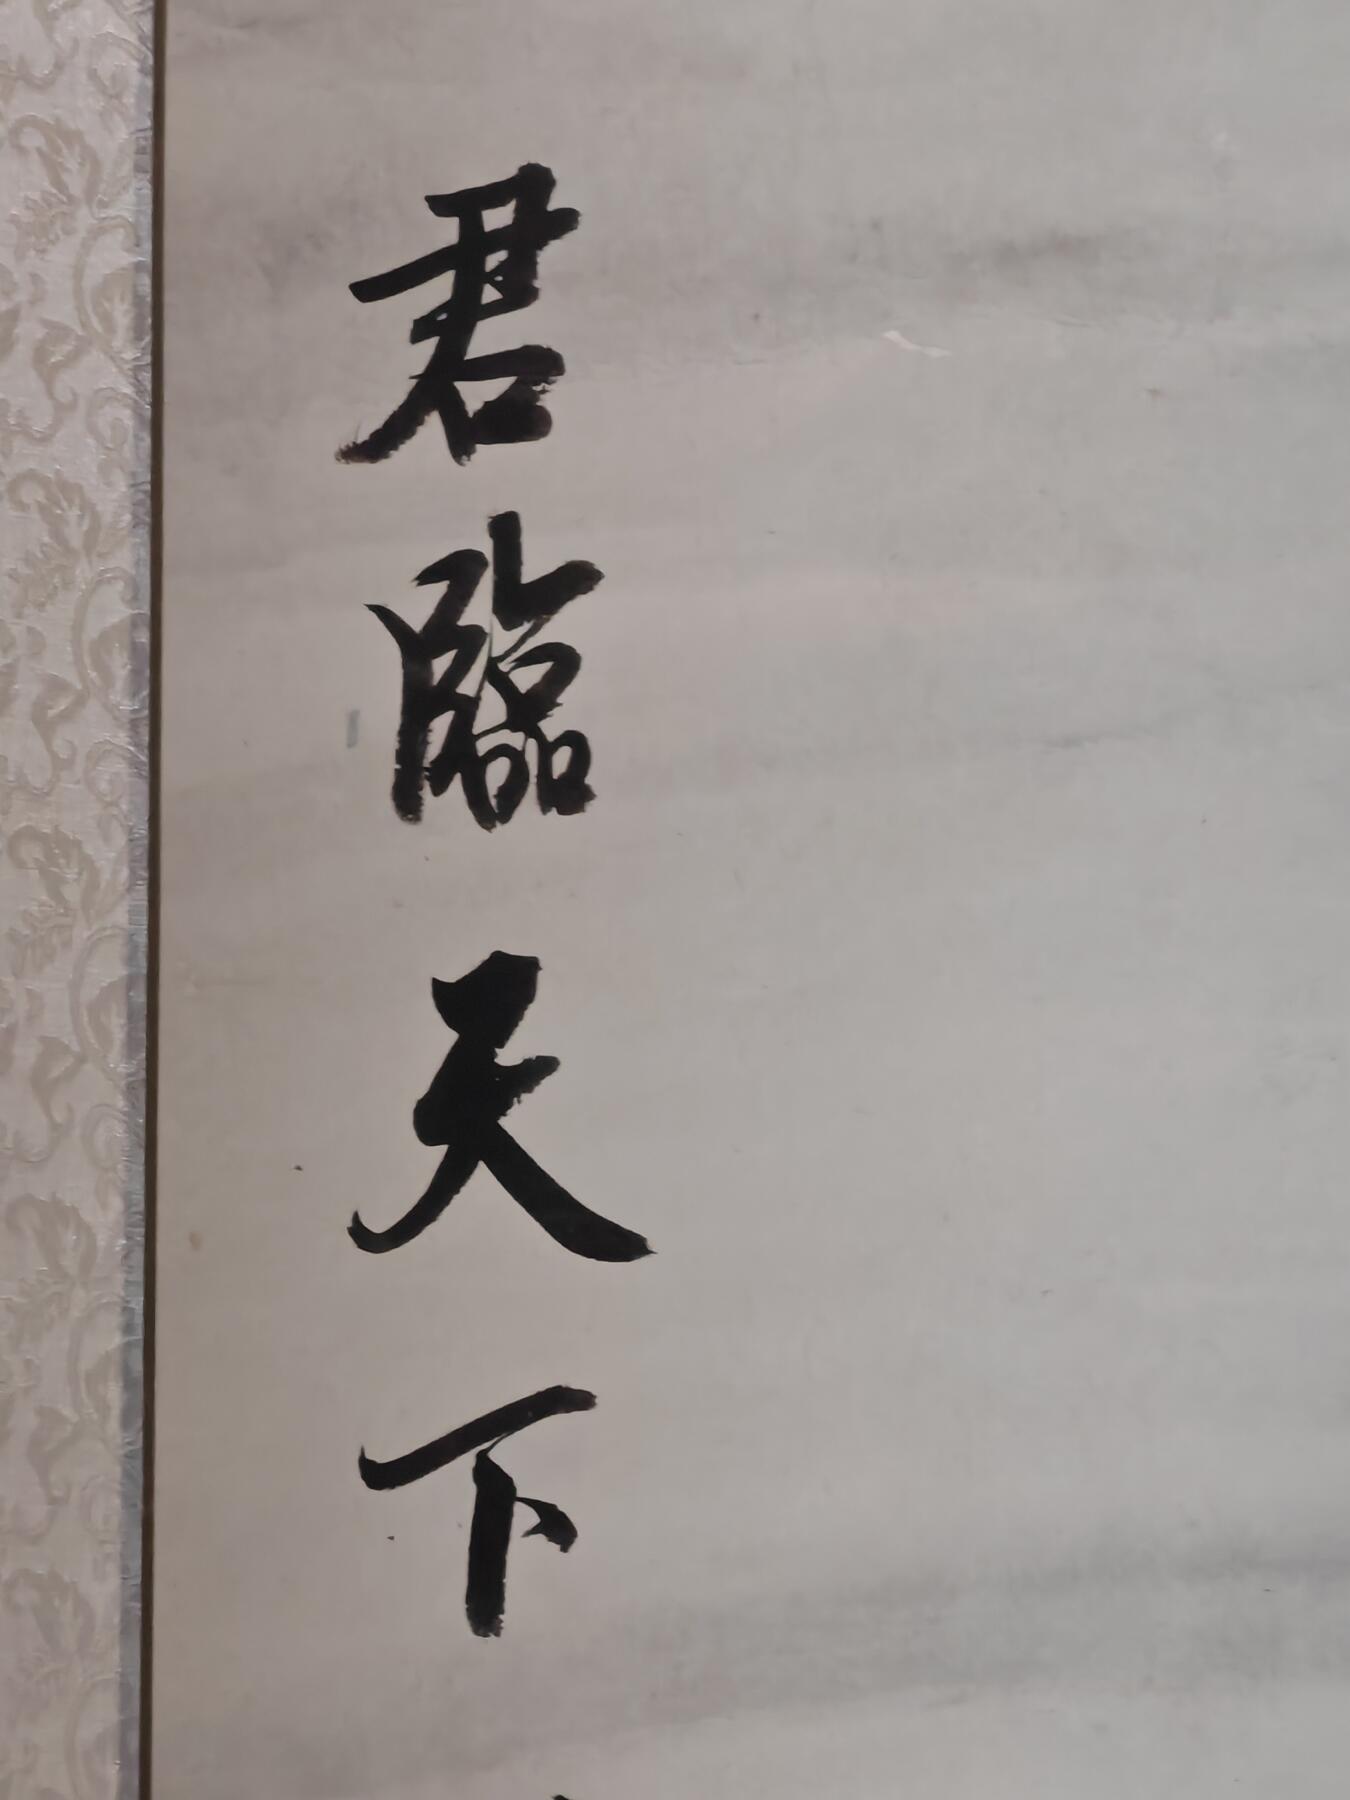 君臨天下